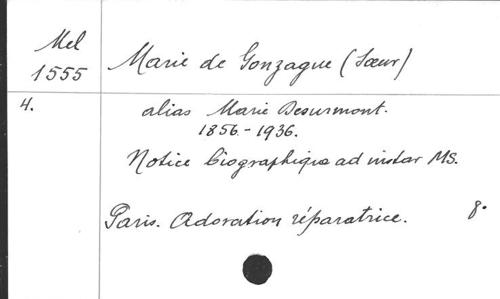 Mel
1555
Marie de Gonzague (Sœur)
4.
alias Marie Desurmont.
1856-1936.
Notice biographique ad instar MS.
Paris. Adoration réparatrice. 8.